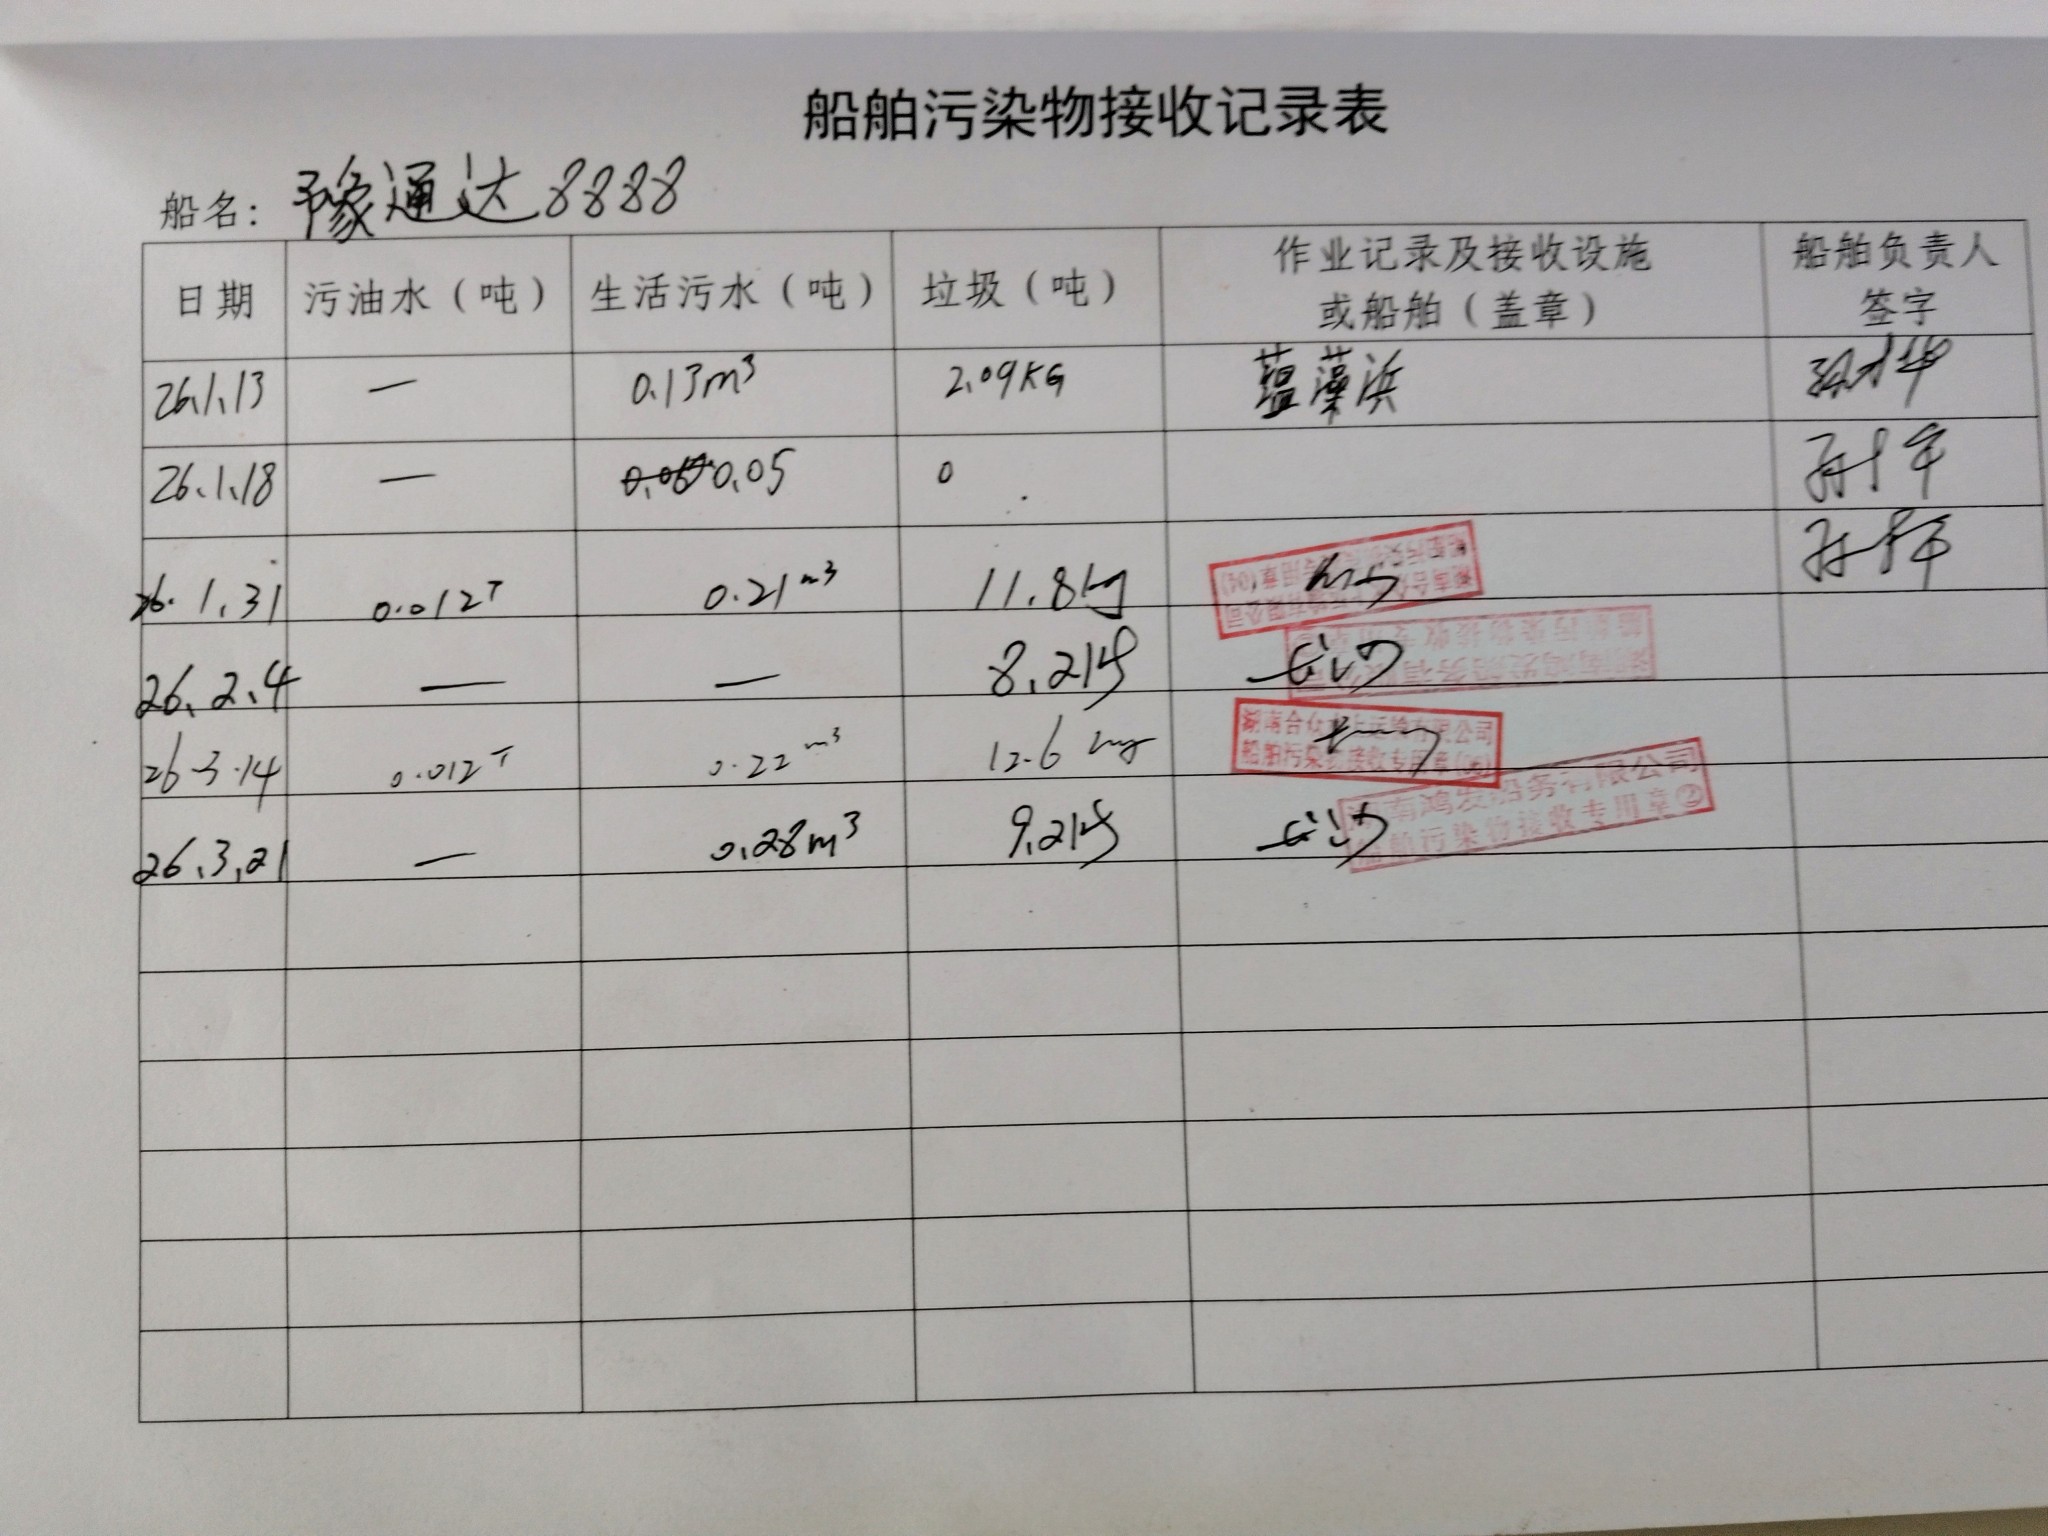 船舶污染物接收记录表
船名：豫通达8888
日期 污油水（吨） 生活污水（吨） 垃圾（吨） 作业记录及接收设施或船舶（盖章） 船舶负责人签字
26.1.13 — 0.13m³ 2.09KG 蕰藻浜
26.1.18 — 0.05 0
26.1.31 0.012T 0.21m³ 11.8kg
26.2.4 — — 8.2kg 长沙
26.3.14 0.012T 0.22m³ 12.6kg
湖南合众水上运输有限公司
船舶污染物接收专用章
26.3.21 — 0.28m³ 9.2kg 长沙
湖南鸿发船务有限公司
船舶污染物接收专用章②